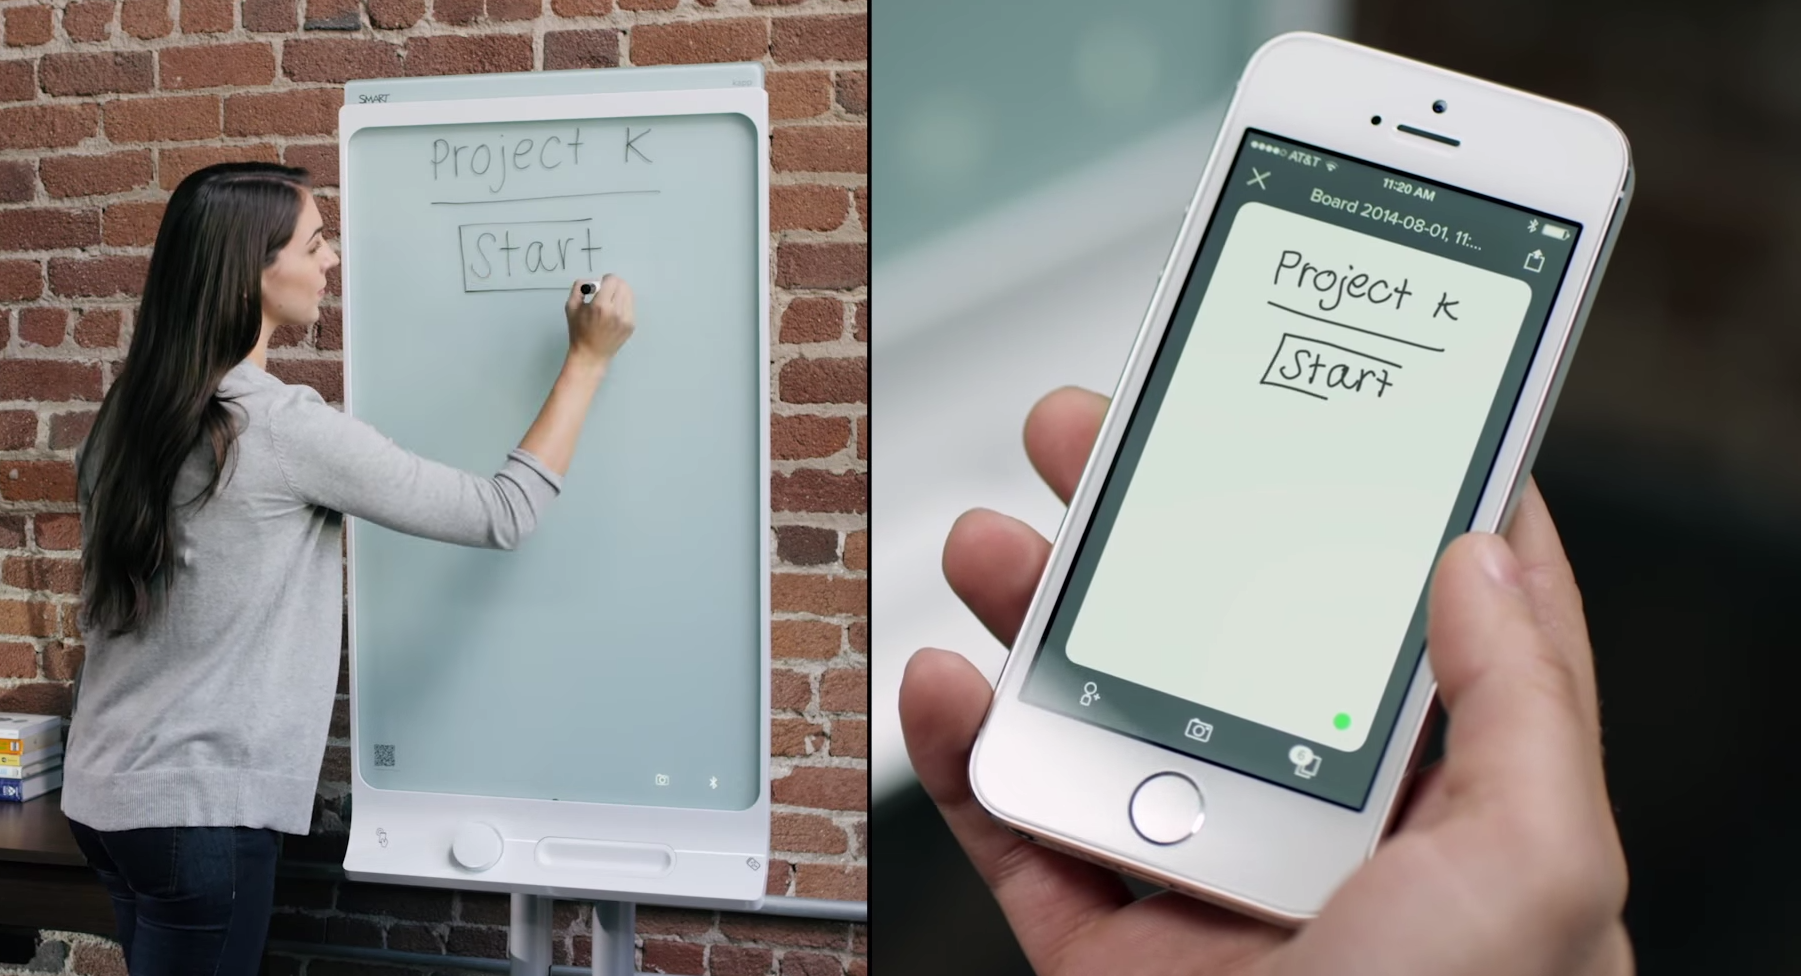 SMART
kapp
Project K
Start
AT&T
11:20 AM
Board 2014-08-01, 11:...
Project K
Start
6